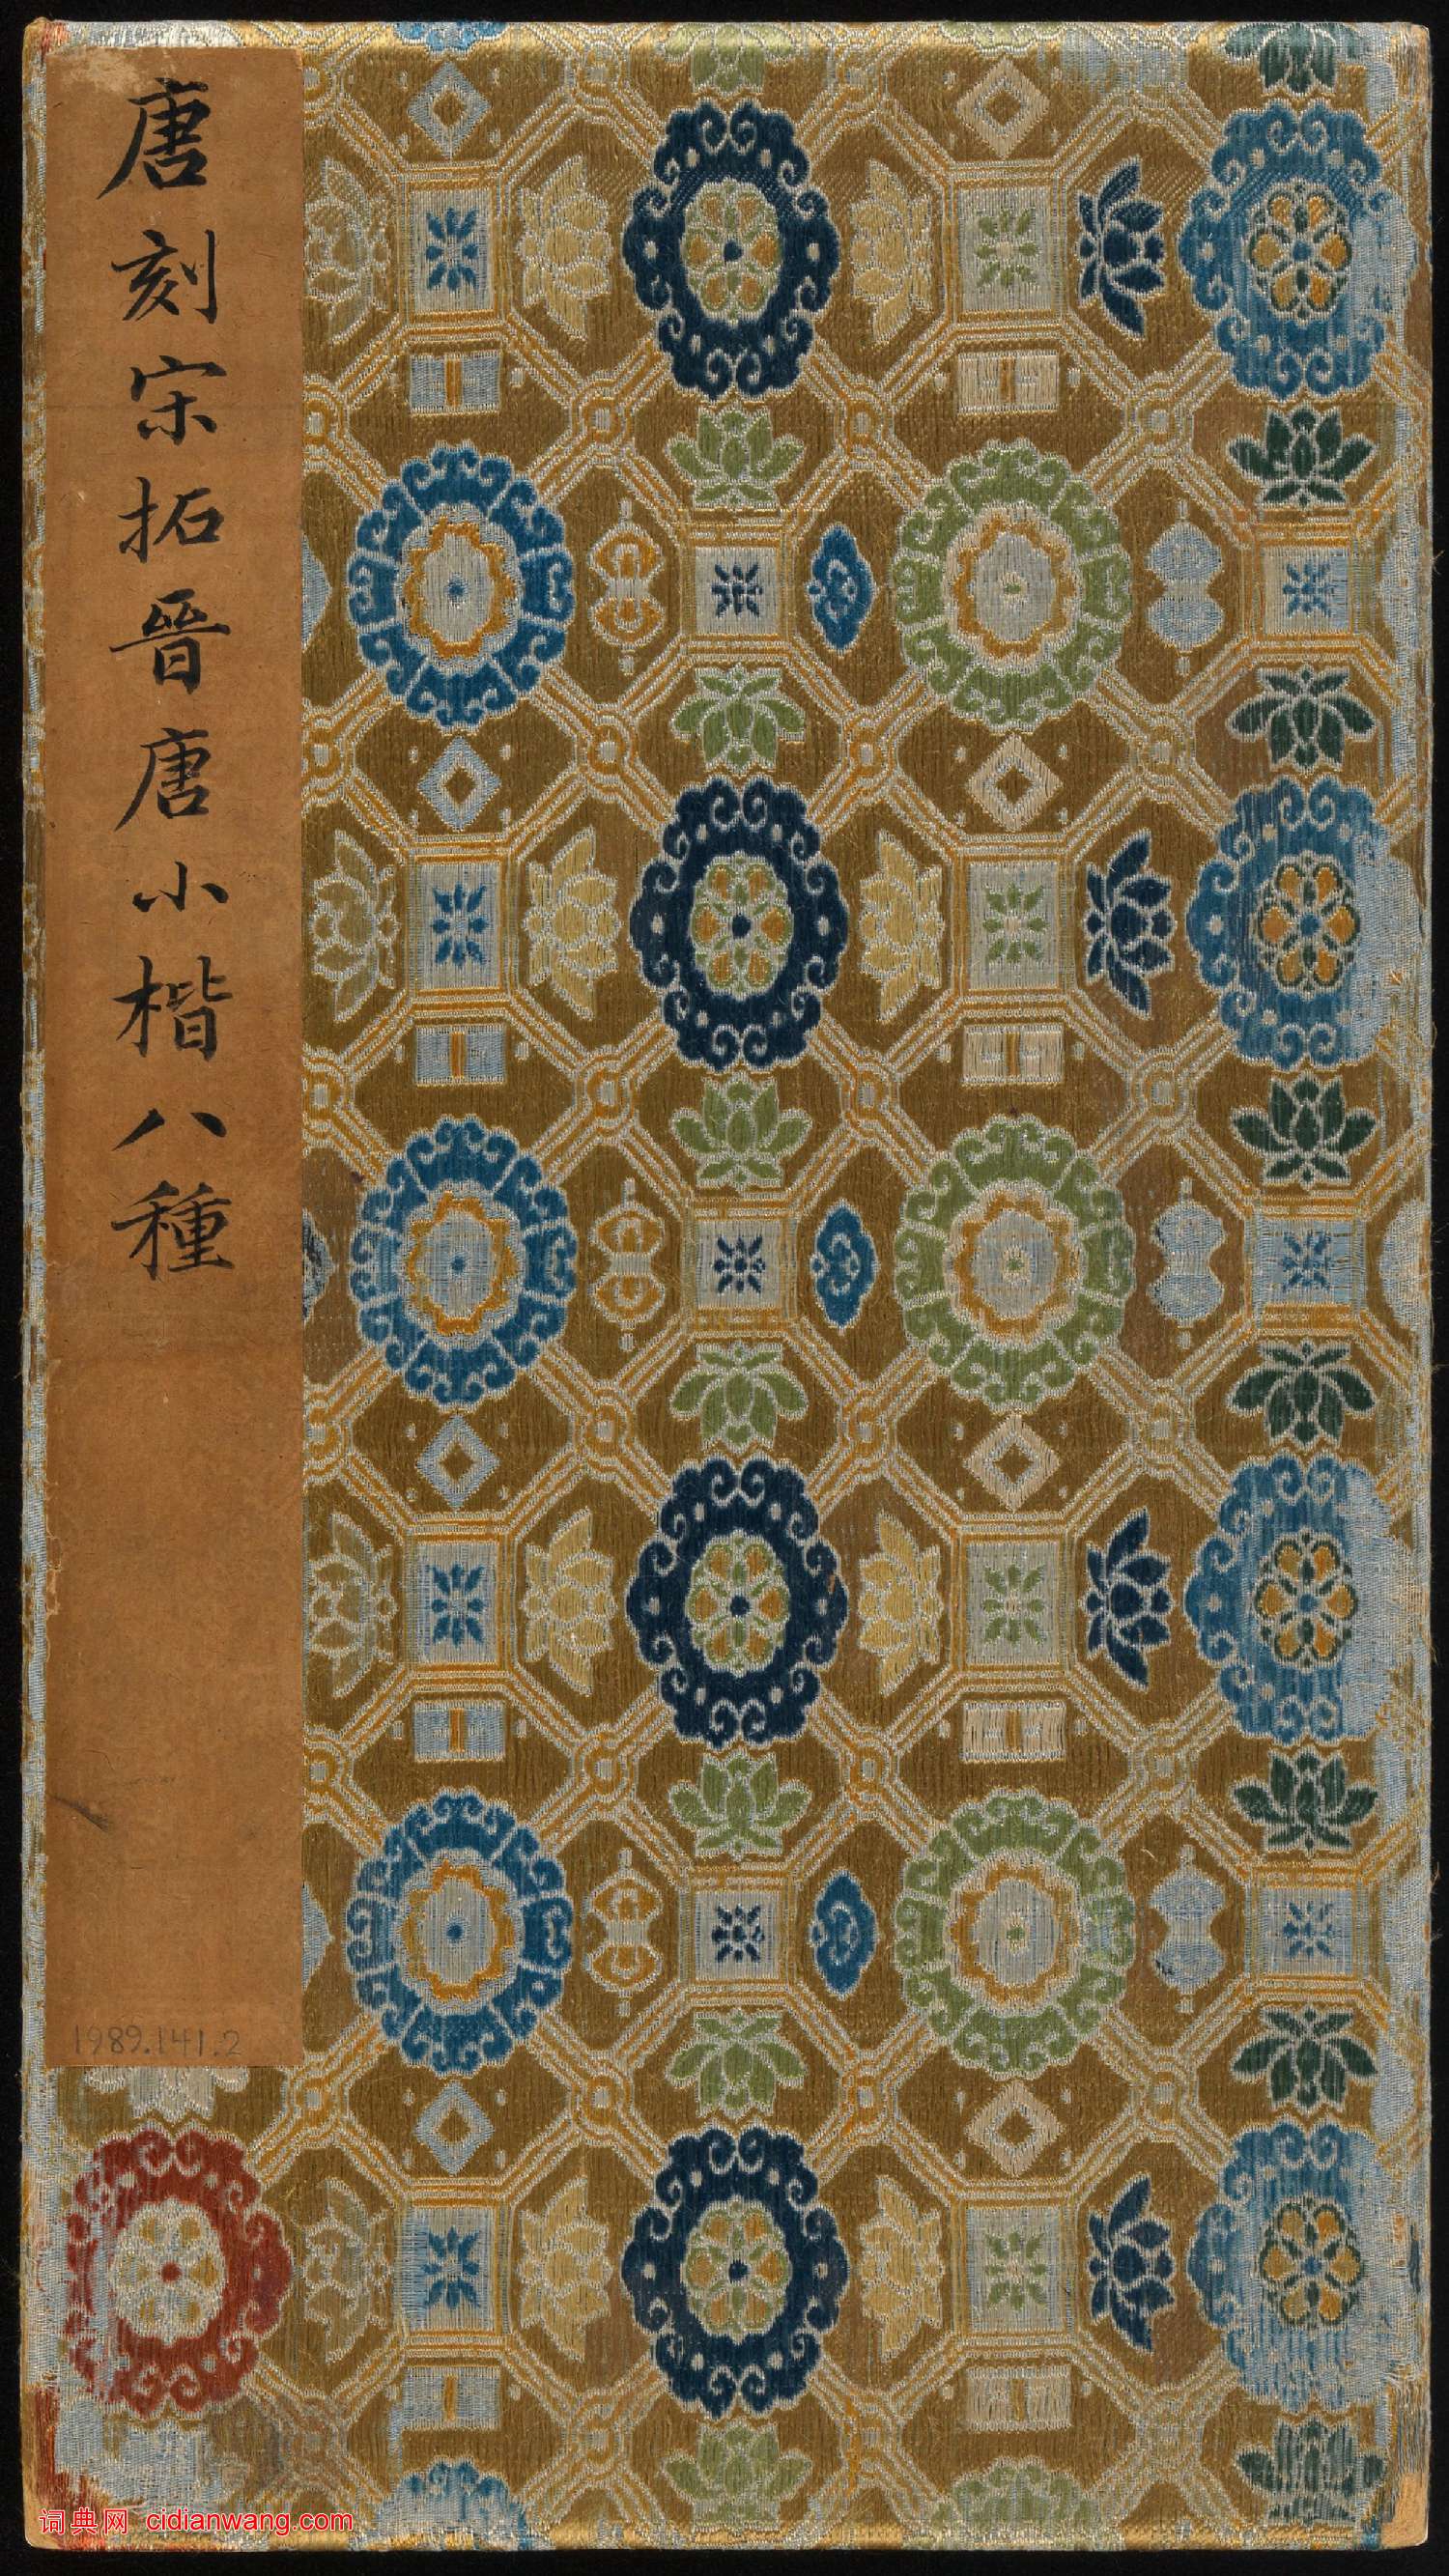 唐刻宋拓晉唐小楷八種
1989.141.2
词典网 cidianwang.com